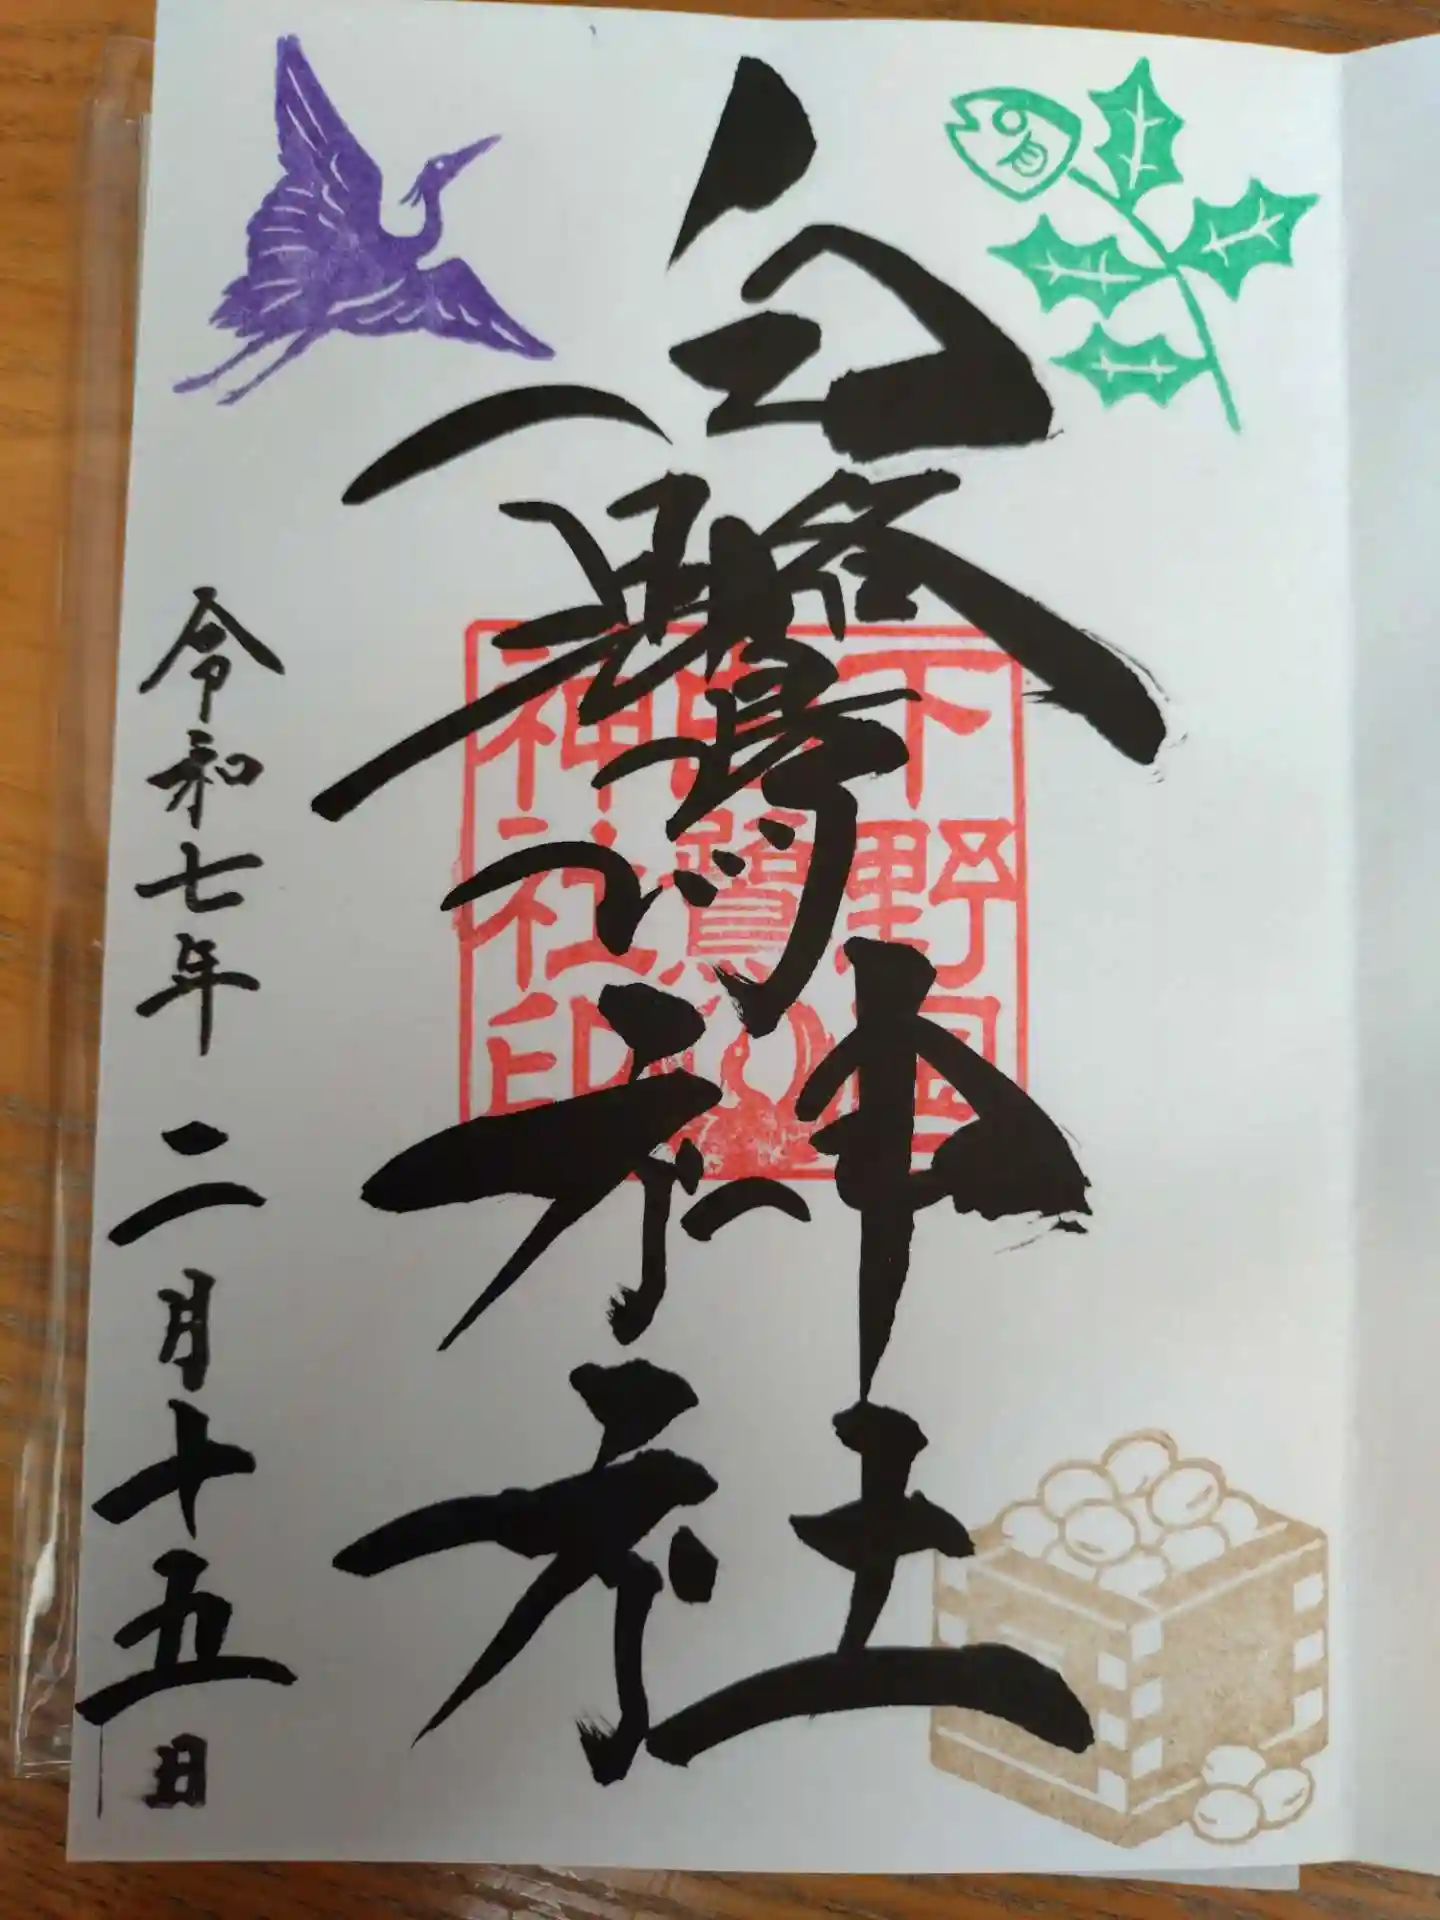 白鷺神社
下野國
神社印
令和七年二月十五日